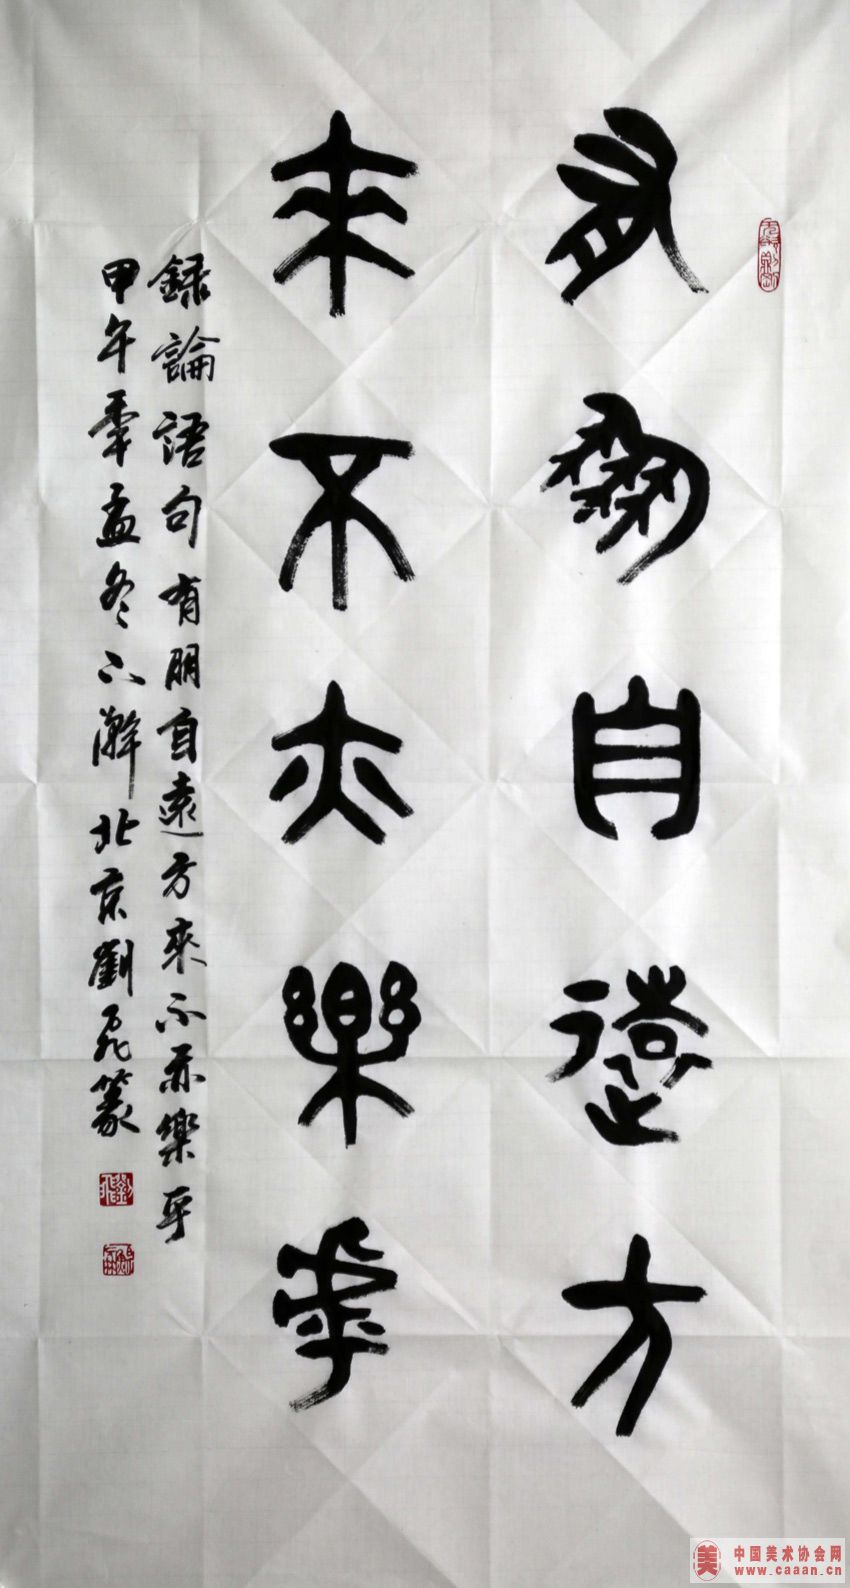 有朋自遠方
來不亦樂乎
錄論語句有朋自遠方來不亦樂乎
甲午年孟冬 北京劉 篆
中国美术协会网
www.caaan.cn